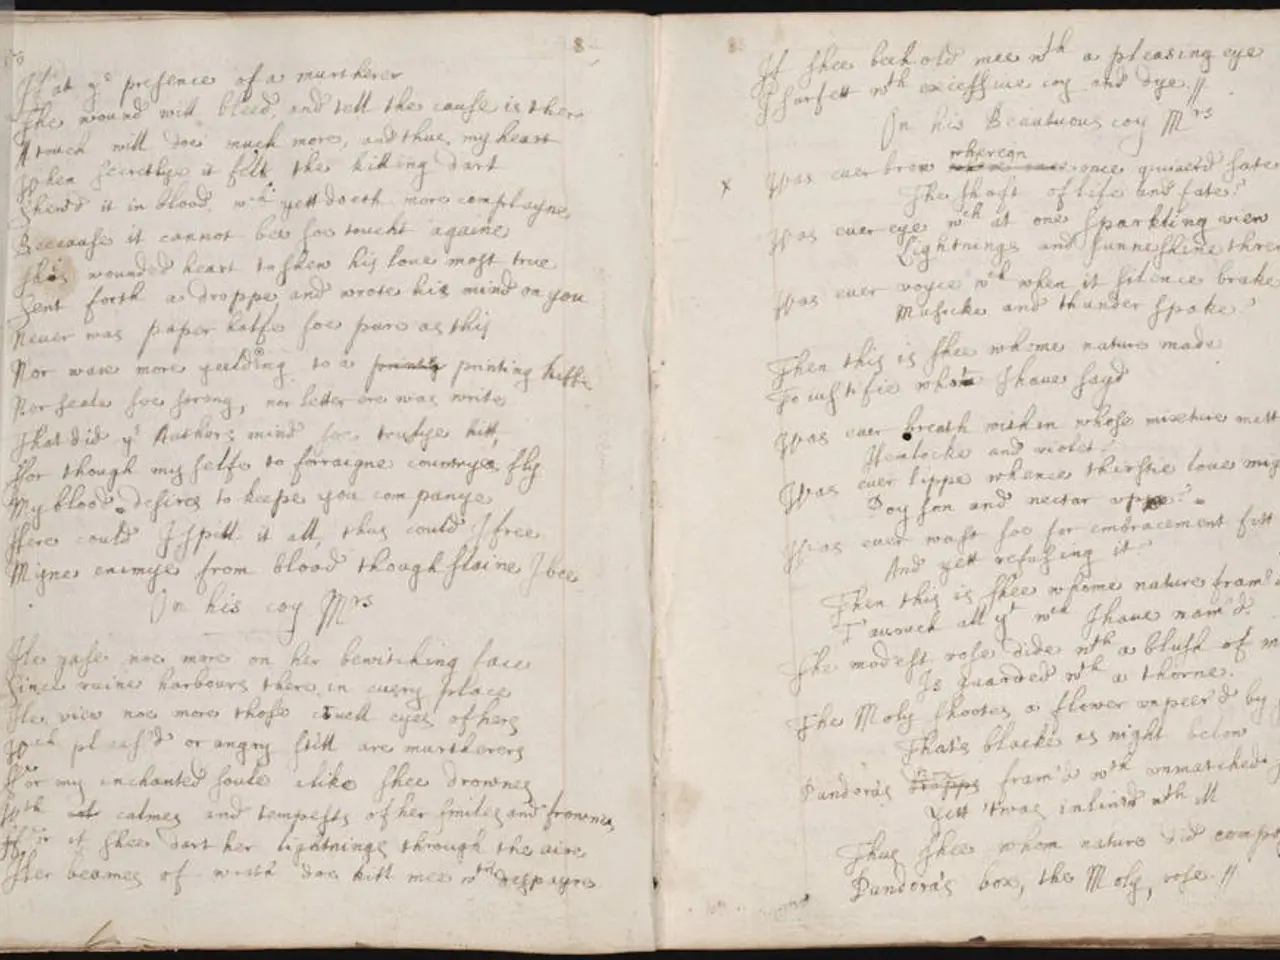 8
That yͤ presence of a murtherer
The wound will bleed, and tell the cause is there
A touch will doe much more, and thus, my heart
When secretlye it felt the killing dart
Shew'd it in blood, wᶜʰ yett doeth more complayne,
Because it cannot bee soe toucht againe
This wounded heart to shew his loue most true
Sent forth a droppe and wrote his mind on you
Neuer was paper halfe soe pure as this
Nor waxe more yeilding to a printing kisse
Nor seale soe strong, nor letter ere was write
That did yͤ Authors mind soe trulye hitt,
Ffor though my selfe to forraigne countryes fly
My blood desires to keepe you companye
Here could I spill it all, thus could I free
Myne enimye from blood though slaine I bee
On his coy Mʳˢ
Ile gase noe more on her bewitching face
Since ruine harbours there in euery place
Ile view noe more those cruell eyes of hers
Wᶜʰ pleas'd or angry still are murtherers
For my inchanted soule alike shee drownes
Wᵗʰ calmes and tempests of her smiles and frownes,
For if shee dart her lightnings through the aire
Her beames of wrath doe kill mee wᵗʰ despayre
If shee behold mee wᵗʰ a pleasing eye
I surfett wᵗʰ excessiue ioy and dye //
On his Beautuous coy Mʳˢ
x Was euer brow wherein once quiuer'd sate
The shaft of life and fate?
Was euer eye wᶜʰ at one sparkling view
Lightnings and sunneshine threw
Was euer voyce wᶜʰ when it silence brake
Musicke and thunder spoke?
Then this is shee whome nature made
To iustifie what I haue sayd
Was euer breath within whose mixture mett
Hemlocke and violet
Was euer lippe whence thirstie loue
Poyson and nectar uppe?
Was euer wast soe for embracement fitt
And yett refusing it
Then this is shee whome nature fram'd
T' outuch all yᵗ wᶜʰ I haue nam'd.
The modest rose dide wᵗʰ a blush of
Is guarded wᵗʰ a thorne.
The Moly shootes a flower unpeer'd by
That's blacke as night below
Pandora's box fram'd wᵗʰ unmatched
Yett twas inlin'd wᵗʰ ill
Thus shee whom nature did
Pandora's box, the Moly, rose //